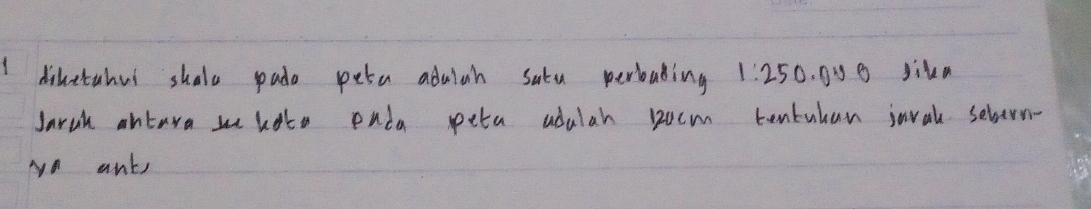 1 diketahui skala pada peta adalah satu perbading 1:250.000 jika
Jarak antara kota pada peta adalah 120cm tentukan jarak sebern-
ya ants